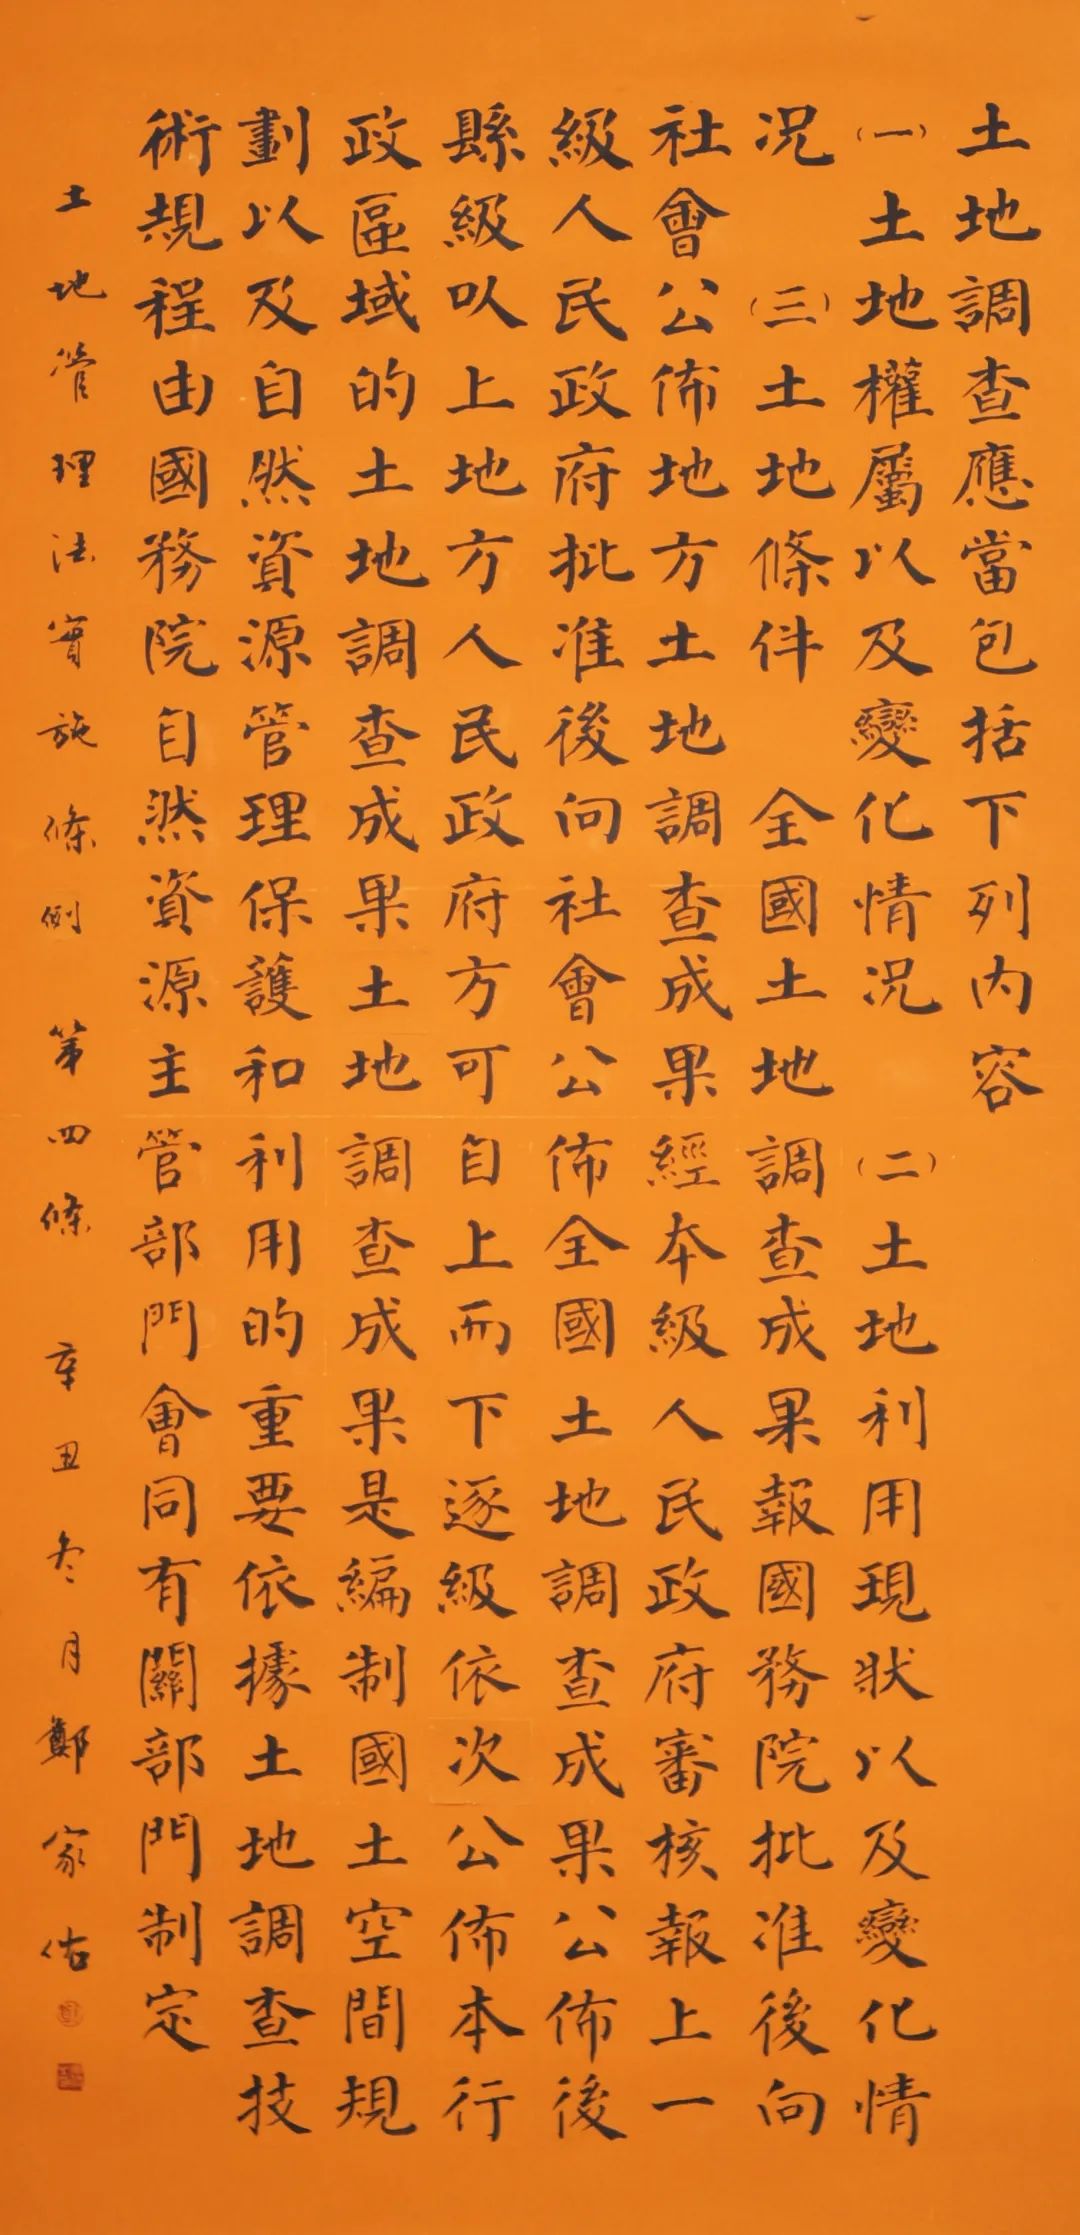 土地調查應當包括下列内容
（一）土地權屬以及變化情况　（二）土地利用現狀以及變化情
况　（三）土地條件　全國土地調查成果報國務院批准後向
社會公佈地方土地調查成果經本級人民政府審核報上一
級人民政府批准後向社會公佈全國土地調查成果公佈後
縣級以上地方人民政府方可自上而下逐級依次公佈本行
政區域的土地調查成果土地調查成果是編制國土空間規
劃以及自然資源管理保護和利用的重要依據土地調查技
術規程由國務院自然資源主管部門會同有關部門制定
土地管理法實施條例　第四條　辛丑冬月鄭家佑